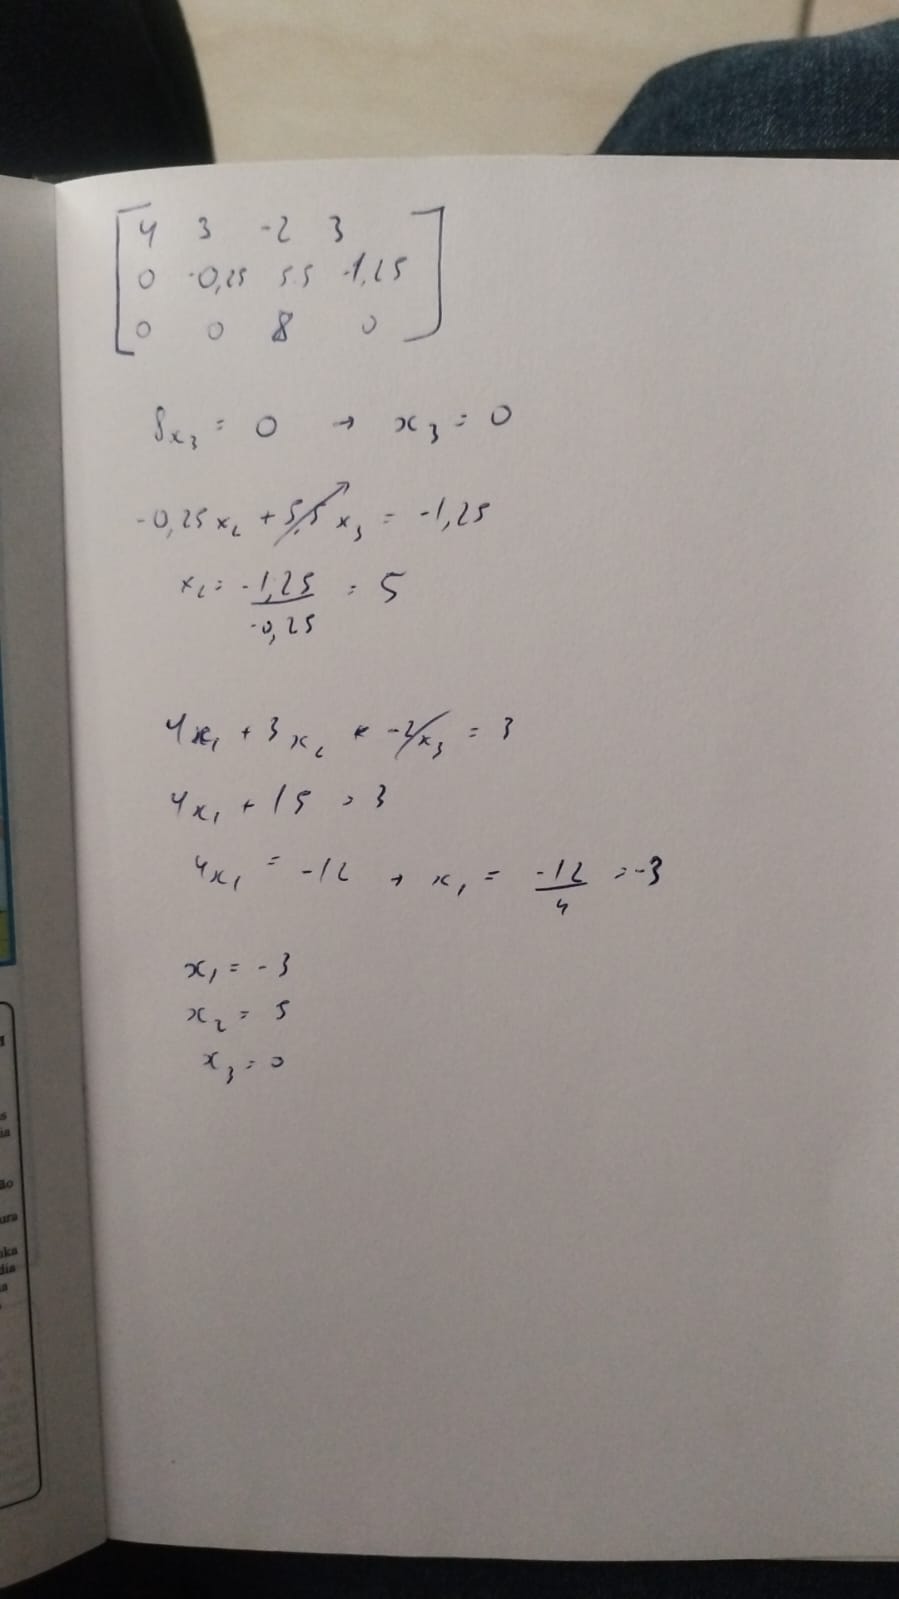 4 3 -2 3
0 -0,25 5.5 -1,25
0 0 8 0
8x₃ = 0 → x₃ = 0
-0,25x₂ + 5,5x₃ = -1,25
x₂ = -1,25/-0,25 = 5
4x₁ + 3x₂ + -2x₃ = 3
4x₁ + 15 = 3
4x₁ = -12 → x₁ = -12/4 = -3
x₁ = -3
x₂ = 5
x₃ = 0